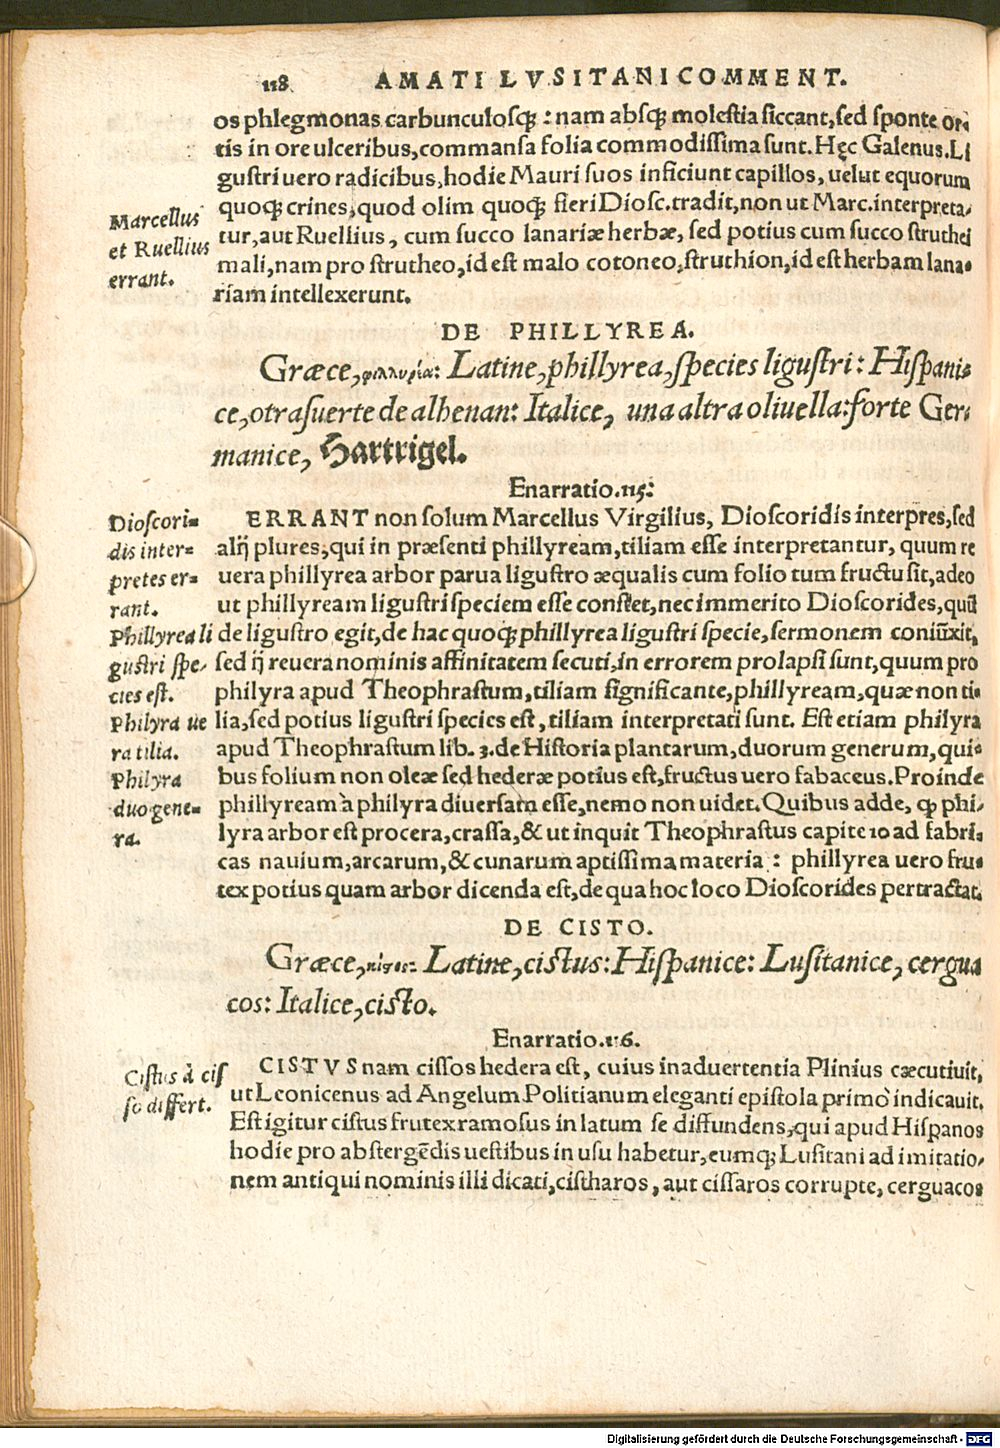 118 AMATI LVSITANI COMMENT.
os phlegmonas carbunculosq́;: nam absq́; molestia siccant, sed sponte or-
tis in ore ulceribus, commansa folia commodissima sunt. Hęc Galenus. Li
gustri uero radicibus, hodie Mauri suos inficiunt capillos, uelut equorum
quoq́; crines, quod olim quoq́; fieri Diosc. tradit, non ut Marc. interpreta-
tur, aut Ruellius, cum succo lanariæ herbæ, sed potius cum succo struthei
mali, nam pro strutheo, id est malo cotoneo, struthion, id est herbam lana-
riam intellexerunt.
Marcellus
et Ruellius
errant.
DE PHILLYREA.
Græce, φιλλυρέα: Latine, phillyrea, species ligustri: Hispani-
ce, otra suerte de alhenan: Italice, una altra oliuella: forte Ger-
manice, Hartrigel.
Enarratio. 115.
ERRANT non solum Marcellus Virgilius, Dioscoridis interpres, sed
alij plures, qui in præsenti phillyream, tiliam esse interpretantur, quum re
uera phillyrea arbor parua ligustro æqualis cum folio tum fructu sit, adeo
ut phillyream ligustri speciem esse constet, nec immerito Dioscorides, qui
de ligustro egit, de hac quoq́; phillyrea ligustri specie, sermonem coniũxit,
sed ij reuera nominis affinitatem secuti, in errorem prolapsi sunt, quum pro
philyra apud Theophrastum, tiliam significante, phillyream, quæ non ti-
lia, sed potius ligustri species est, tiliam interpretati sunt. Est etiam philyra
apud Theophrastum lib. 3. de Historia plantarum, duorum generum, qui-
bus folium non oleæ sed hederæ potius est, fructus uero fabaceus. Proinde
phillyream à philyra diuersam esse, nemo non uidet. Quibus adde, ꝙ phi-
lyra arbor est procera, crassa, & ut inquit Theophrastus capite 10 ad fabri-
cas nauium, arcarum, & cunarum aptissima materia: phillyrea uero fru-
tex potius quam arbor dicenda est, de qua hoc loco Dioscorides pertractat.
Dioscori-
dis inter-
pretes er-
rant.
Phillyrea li
gustri spe-
cies est.
Philyra ue
ra tilia.
Philyra
duo gene-
ra.
DE CISTO.
Græce, κίστος: Latine, cistus: Hispanice: Lusitanice, cergua
cos: Italice, cisto.
Enarratio. 116.
CISTVS nam cissos hedera est, cuius inaduertentia Plinius cæcutiuit,
ut Leonicenus ad Angelum Politianum eleganti epistola primo indicauit.
Est igitur cistus frutex ramosus in latum se diffundens, qui apud Hispanos
hodie pro abstergẽdis uestibus in usu habetur, eumq́; Lusitani ad imitatio-
nem antiqui nominis illi dicati, cistharos, aut cissaros corrupte, cerguacos
Cistus à cis
so differt.
Digitalisierung gefördert durch die Deutsche Forschungsgemeinschaft - DFG